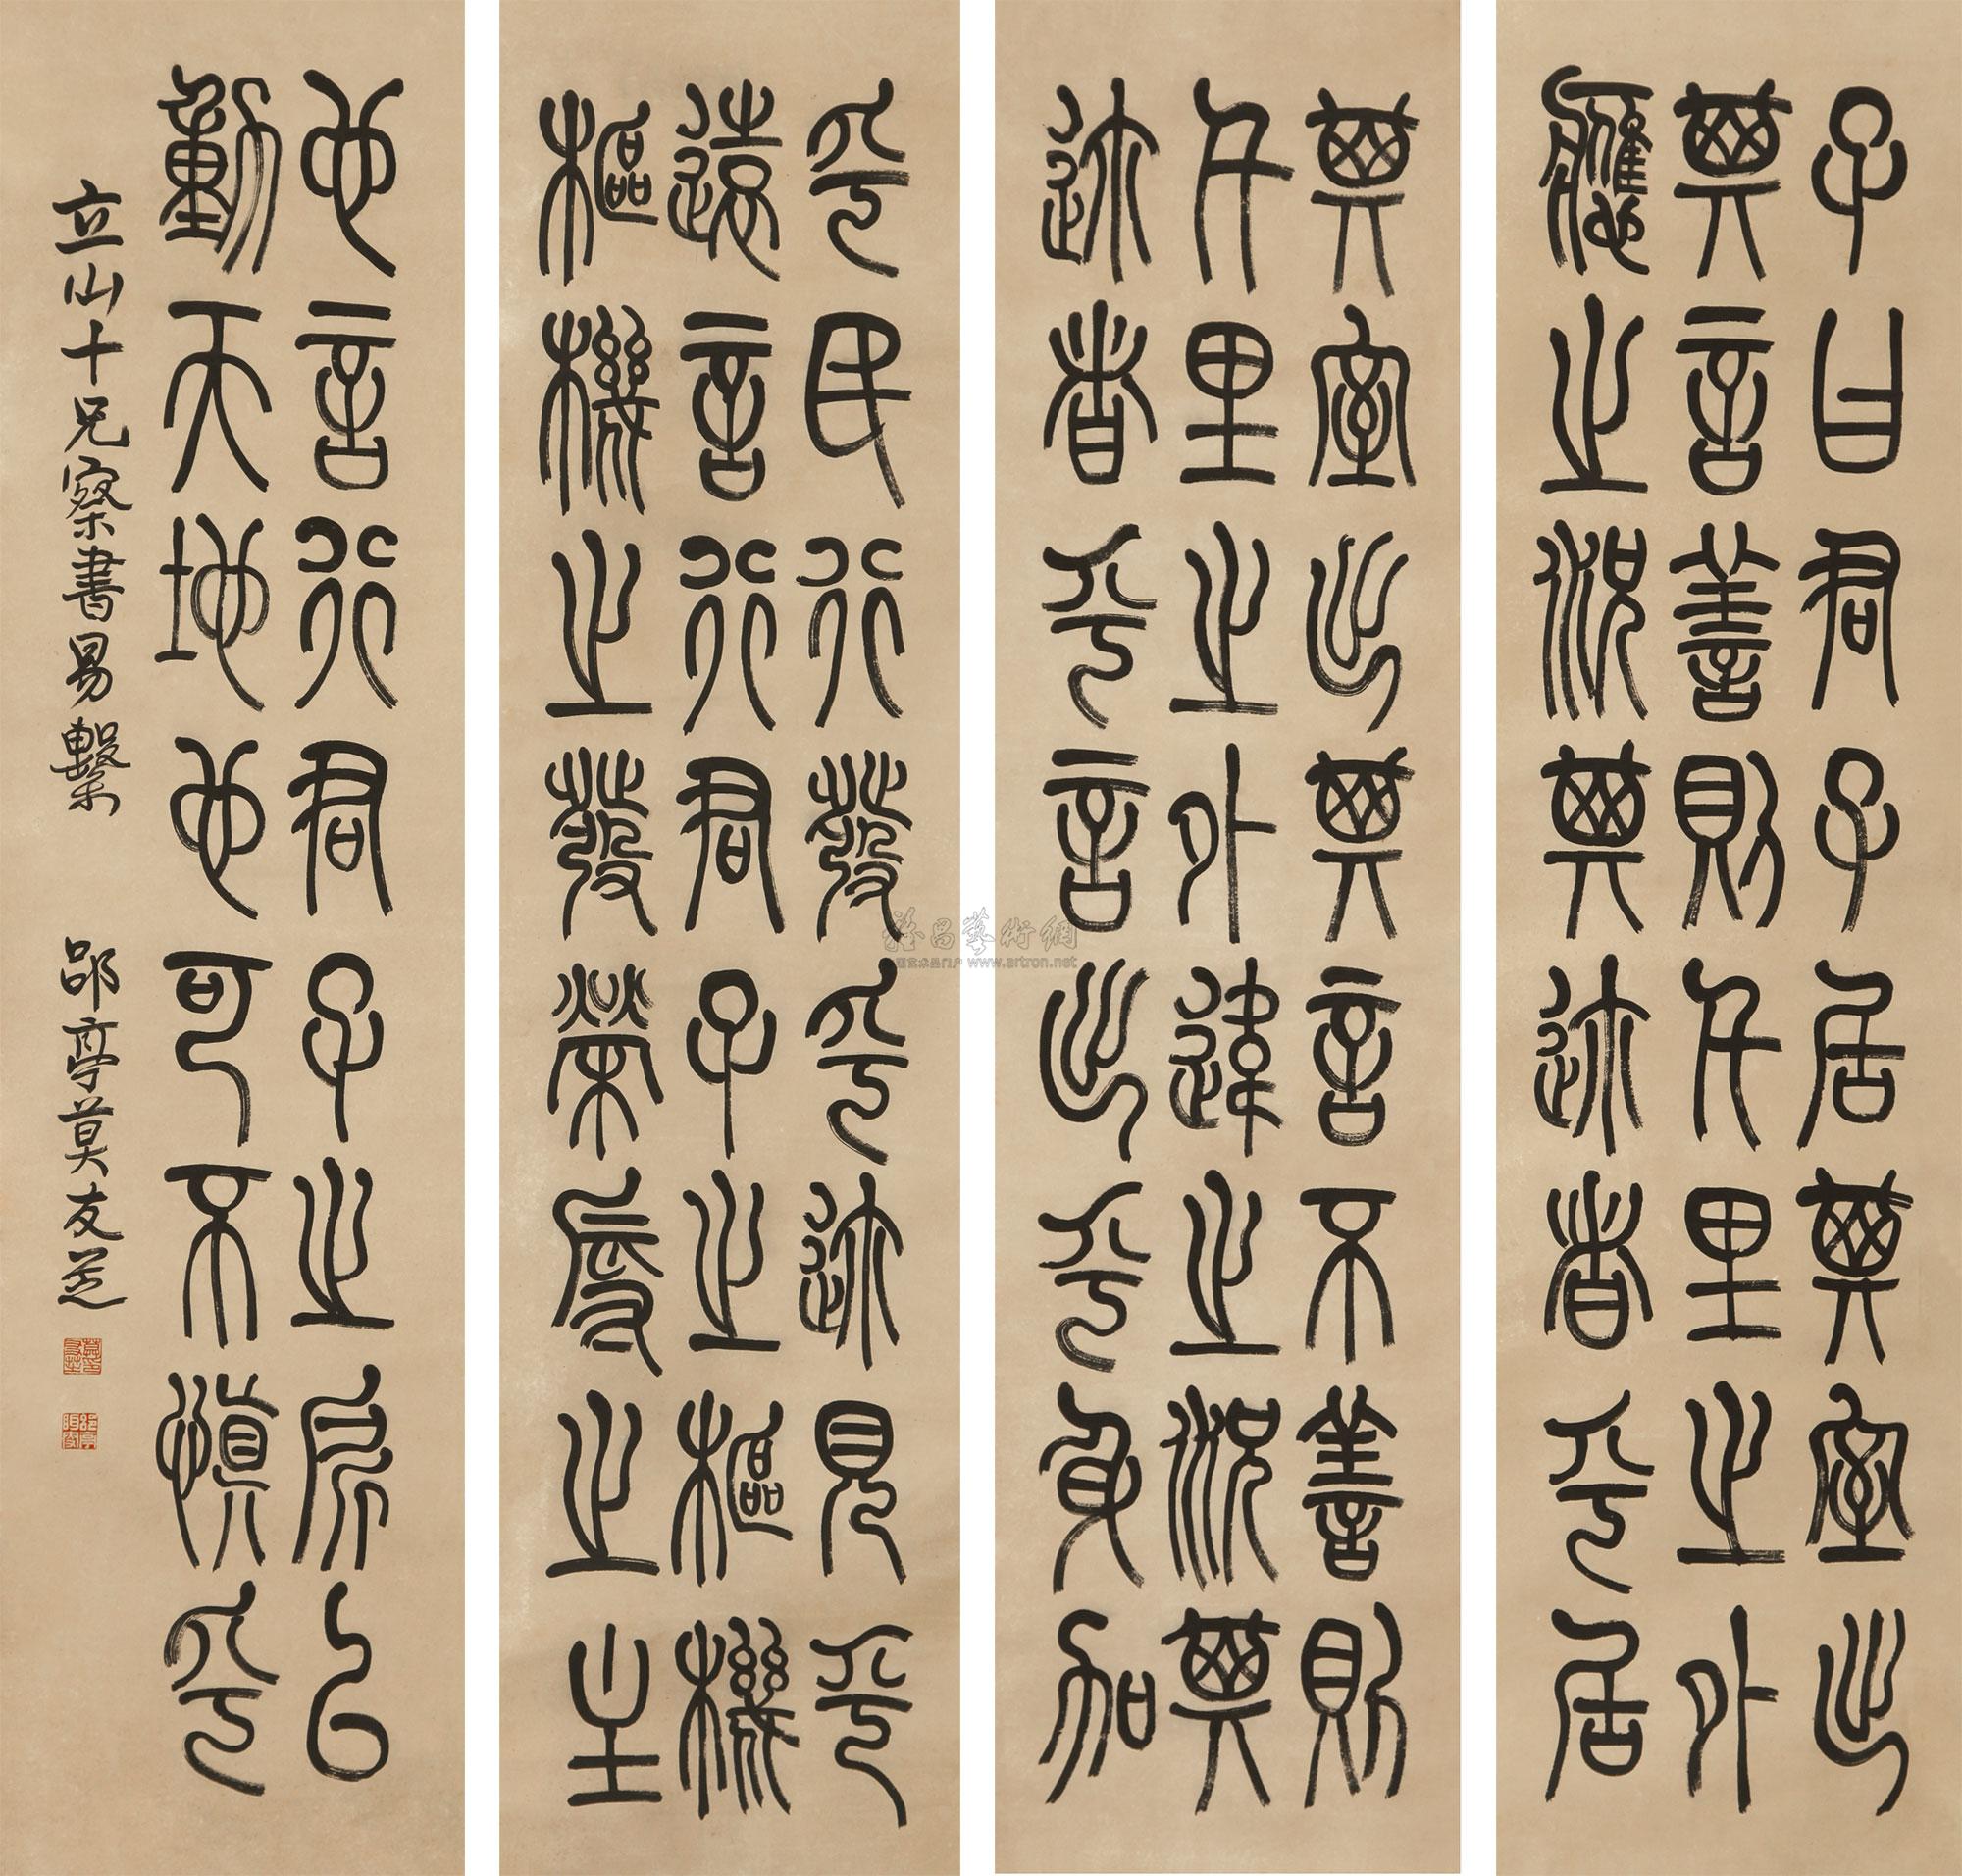 子曰君子居其室出
其言善則千里之外
應之況其邇者乎居
其室出其言不善則
千里之外違之況其
邇者乎言出乎身加
乎民行發乎邇見乎
遠言行君子之樞機
樞機之發榮辱之主
也言行君子之所以
動天地也可不慎乎
立山十兄察書易繫 郘亭莫友芝
莫友芝
郘亭眲叟
雅昌藝術網
中国艺术品门户 www.artron.net